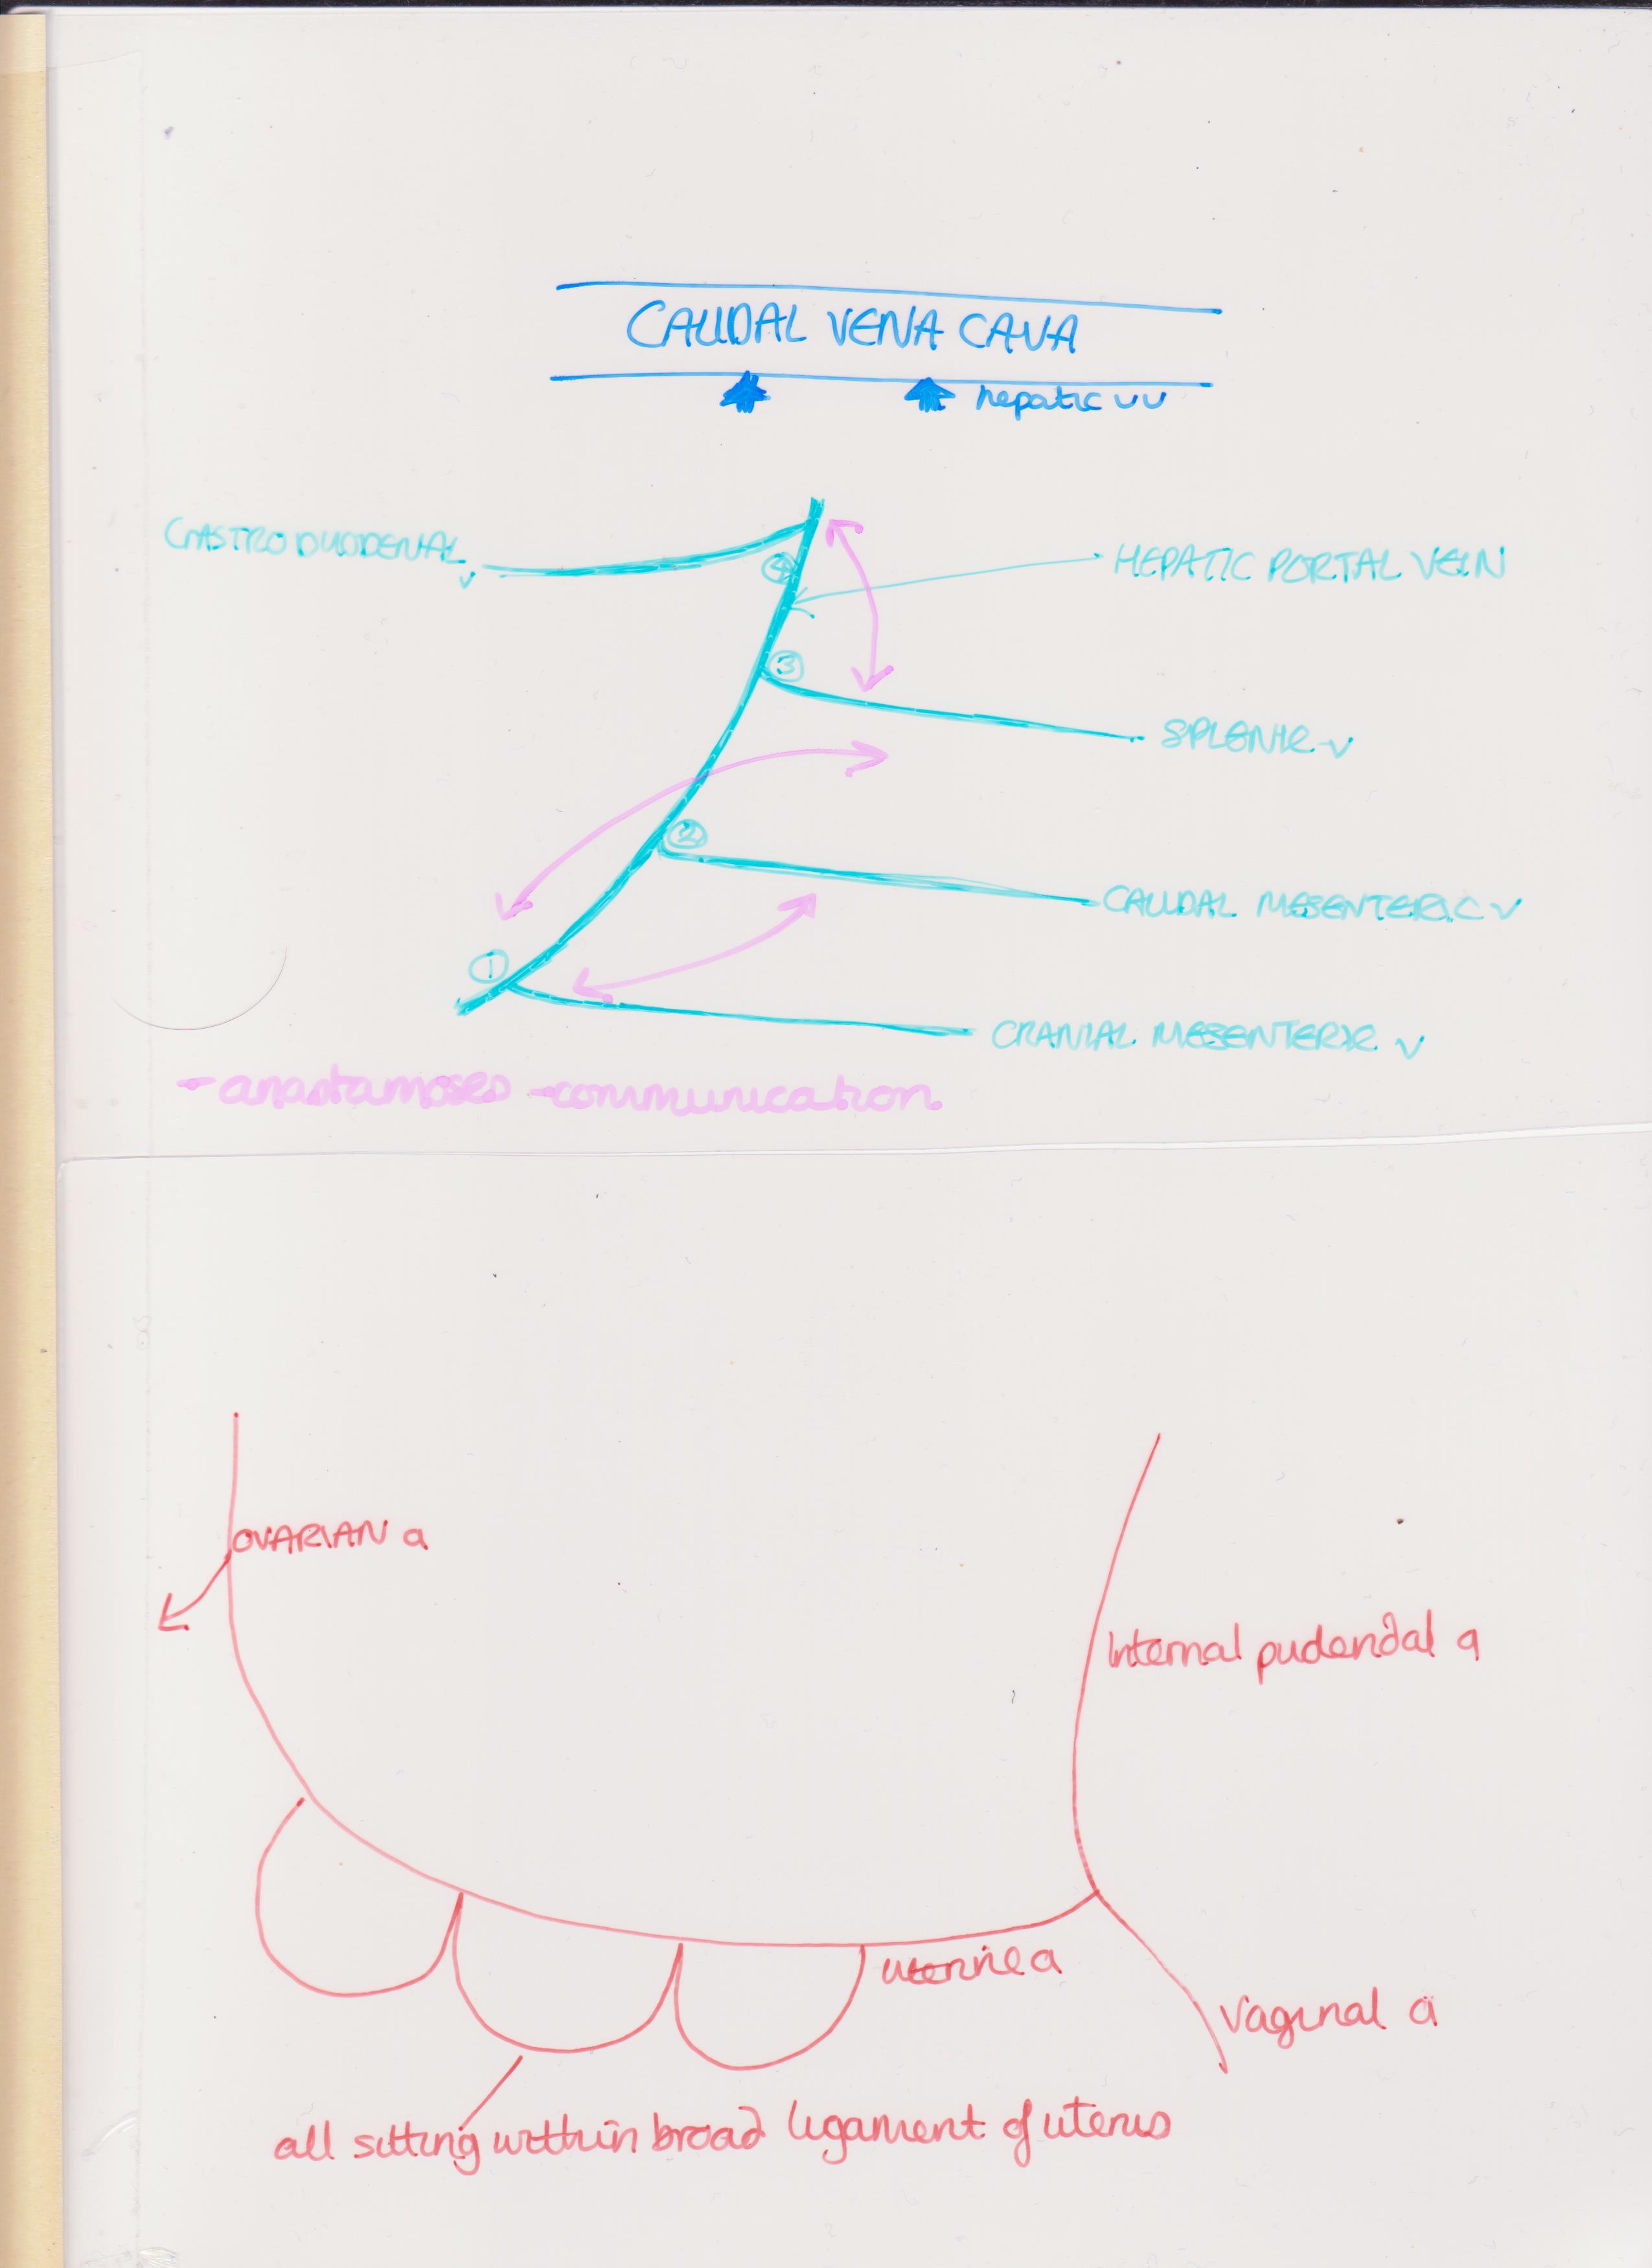 CAUDAL VENA CAVA
hepatic vv
GASTRODUODENAL v
④
HEPATIC PORTAL VEIN
③
SPLENIC v
②
CAUDAL MESENTERIC v
①
CRANIAL MESENTERIC v
- anastamoses - communication
OVARIAN a
Internal pudendal a
uterine a
Vaginal a
all sitting within broad ligament of uterus